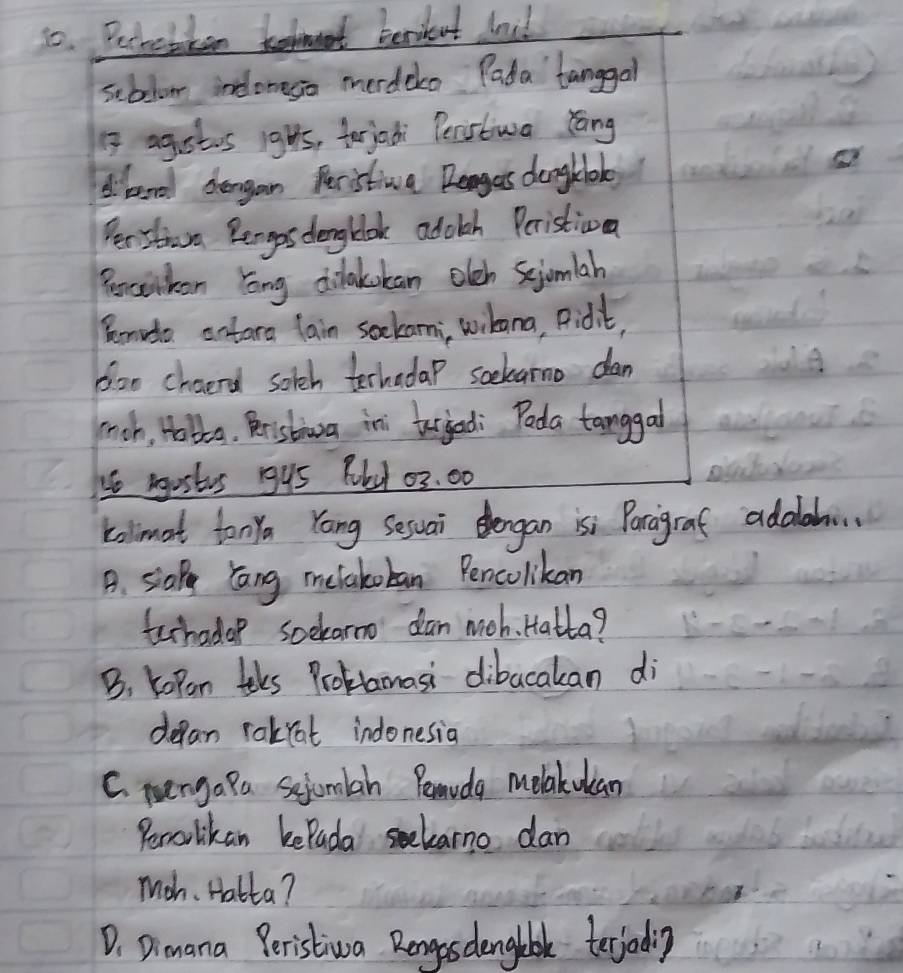 10. Perhatikan kalimat berikut ini!
sebelum indonesia merdeka Pada tanggal
17 agustus 1945, terjadi Peristiwa Yang
dikenal dengan Peristiwa Rengas dengklok
Peristiwa Rengas dengklok adolah Peristiwa
Penculikan Yang dilakukan oleh Sejumlah
Pemuda antara lain soekarni, wikana, Aidit,
dan chaerul soleh terhadaP soekarno dan
moh, Hatta. Peristiwa ini terjadi Pada tanggal
16 agustus 1945 Pukul 03.00
kalimat tanYa Yang sesuai dengan isi Paragraf adalah...
A. siaPa Yang melakukan Penculikan
terhadaP soekarno dan moh. Hatta?
B. KaPan teks Proklamasi dibacakan di
dePan rakYat indonesia
C. mengaPa sejumlah Pemuda melakukan
Penculikan kePada soekarno dan
moh. Hatta?
D. Dimana Peristiwa Rengasdengklok terjadi?